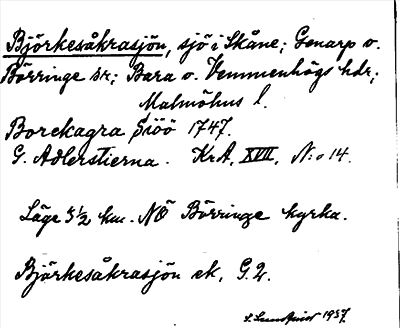 Björkesåkrasjön, sjö i Skåne; Genarp o.
Börringe sr; Bara o. Vemmenhögs hdr;
Malmöhus l.
Borekagra Siöö 1747.
G. Adlerstierna. KrA, XVII, N:o 14.
Läge 3½ km. NÖ Börringe kyrka.
Björkesåkrasjön ek. G.2.
1937.